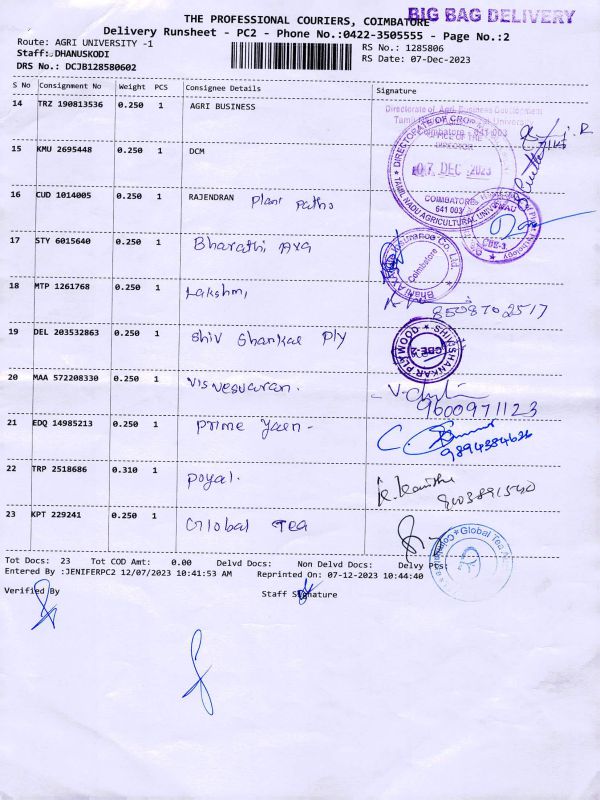 THE PROFESSIONAL COURIERS, COIMBATORE
BIG BAG DELIVERY
Delivery Runsheet - PC2 - Phone No.:0422-3505555 - Page No.:2
Route: AGRI UNIVERSITY -1
RS No.: 1285806
Staff: DHANUSKODI
RS Date: 07-Dec-2023
DRS No.: DCJB128580602
S No Consignment No Weight PCS Consignee Details Signature
14 TRZ 190813536 0.250 1 AGRI BUSINESS
Directorate of Agri Business Development
Coimbatore - 641 003
15 KMU 2695448 0.250 1 DCM
DIRECTORATE OF CROP
OFFICE OF THE
DIRECTOR
07 DEC 2023
COIMBATORE
641 003
TAMIL NADU AGRICULTURAL UNIVERSITY
16 CUD 1014005 0.250 1 RAJENDRAN Plant Paths
17 STY 6015640 0.250 1 Bharathi Axa
Coimbatore
18 MTP 1261768 0.250 1 Lakshmi
8508702517
19 DEL 203532863 0.250 1 Shiv Shankar Ply
SHIVSHANKAR PLYWOOD
20 MAA 572208330 0.250 1 Visvesvaran.
9600971123
21 EDQ 14985213 0.250 1 Prime Yaen-
9894384626
22 TRP 2518686 0.310 1 Poyal.
23 KPT 229241 0.250 1 Global Tea
Global Tea
Tot Docs: 23 Tot COD Amt: 0.00 Delvd Docs: Non Delvd Docs: Delvy Pts:
Entered By :JENIFERPC2 12/07/2023 10:41:53 AM Reprinted On: 07-12-2023 10:44:40
Verified By Staff Signature